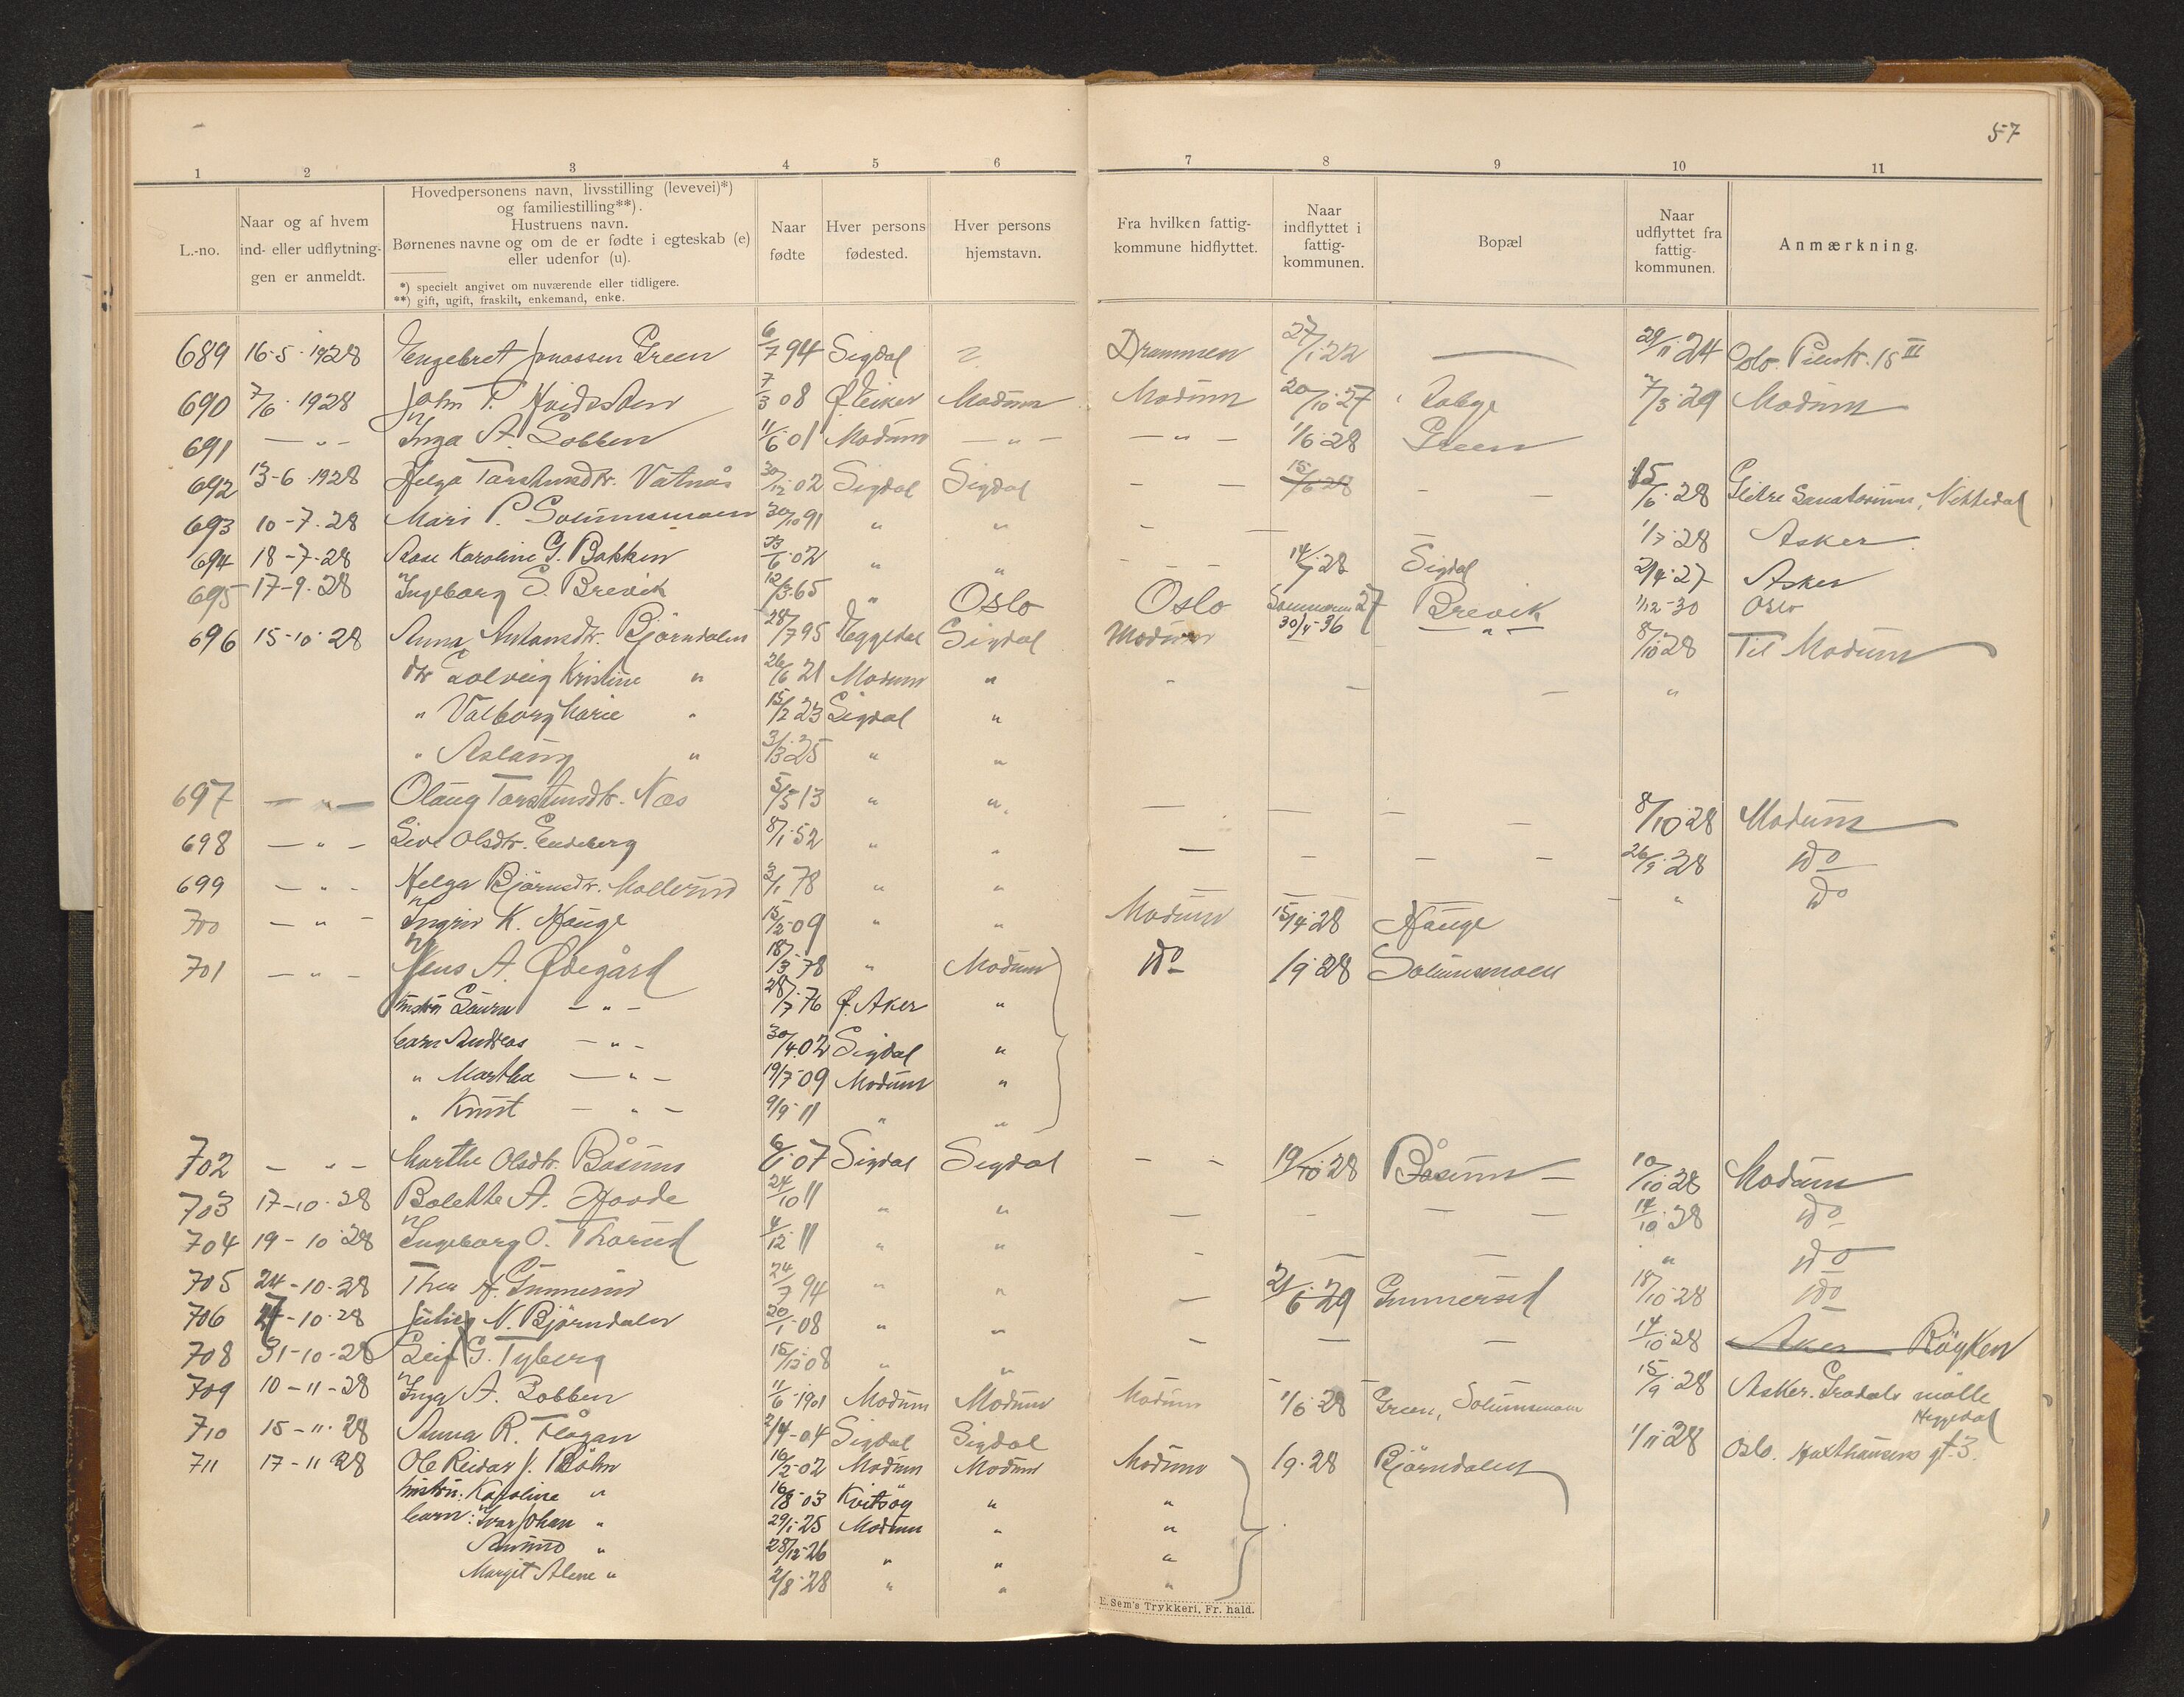 57
1 2 3 4 5 6 7 8 9 10 11
L.-no.
Naar og af hvem
ind- eller udflytnin-
gen er anmeldt.
Hovedpersonens navn, livsstilling (levevei)*)
og familiestilling**).
Hustruens navn.
Børnenes navne og om de er fødte i egteskab (e)
eller udenfor (u).
*) specielt angivet om nuværende eller tidligere.
**) gift, ugift, fraskilt, enkemand, enke.
Naar
fødte
Hver persons
fødested.
Hver persons
hjemstavn.
Fra hvilken fattig-
kommune hidflyttet.
Naar
indflyttet i
fattig-
kommunen.
Bopæl
Naar
udflyttet fra
fattig-
kommunen.
Anmærkning.
689 16-5-1928 Engebret Jonassen Green 6/7 94 Sigdal ? Drammen 27/1 22 — 29/11 24 Oslo. Pilestr. 15 III
690 7/6 1928 John T. Hvidsten 7/3 08 Ø. Eiker Modum Modum 20/10 27 7/3 29 Modum
691 — " — Inga A. Lobben 11/6 01 Modum — " — — " — 1/6 28 Green
692 13-6-1928 Helga Torstensdtr. Vatnås 30/12 02 Sigdal Sigdal — — 15/6 28 — — 15/6 28 Glitre Sanatorium, Nittedal
693 10-7-28 Mari P. Solumsmoen 30/10 91 " " — — — 1/7 28 Asker
694 18-7-28 Aase Karoline G. Bakken 23/6 02 " " — — — 14/7 28 Sigdal 2/4 27 Asker
695 17-9-28 Ingeborg S. Brevik 12/3 65 " Oslo Oslo Sommeren 27 Brevik 1/12-30 Oslo
30/4-36 — " —
696 15-10-28 Anna Antonsdtr. Bjørndalen 28/7 95 Eggedal Sigdal Modum 8/10 28 Til Modum
dtr Solveig Kristine " 26/6 21 Modum " - — — "
" Valborg Marie " 15/2 23 Sigdal "
" Aslaug " 3/3 25 " "
697 — " — Olaug Torstensdtr. Næs 5/5 13 " " — — — — 8/10 28 Modum
698 — " — Sive Olsdtr. Endeberg 8/1 52 " " — — — — 26/9 28 Do
699 — " — Helga Bjørnsdtr. Mollerud 3/1 78 " " — — — - " Do
700 — " — Ingrid K. Hauge 15/2-09 " " Modum 15/4 28 Hauge
701 — " — Jens A. Ødegård 18/3-78 " Modum Do 1/9 28 Solumsmoen
hustru Laura — " — 28/7-76 Ø. Aker "
barn Andreas — " — 30/4 02 Sigdal "
" Martha — " — 19/7-09 Modum "
" Knut — " — 9/9-11 " "
702 — " — Marthe Olsdtr. Båsum 6/1 07 Sigdal Sigdal — — 19/10 28 Båsum — 10/10 28 Modum
703 17-10-28 Bolette A. Hovde 24/10 11 " " — — — — 14/10 28 Do
704 19-10-28 Ingeborg O. Thorud 4/12 11 " " — — — " Do
705 24-10-28 Thea A. Gunnerud 24/7 94 " " — 21/6 29 Gunnerud 18/10 28 Do
706 27-10-28 N. Bjørndalen 20/1-08 " " — — — 14/10 28 Aker Røyken
708 31-10-28 Leif G. Tyberg 15/12 08 " " — — — 15/9 28 Asker. mølle
Heggedal
709 10-11-28 Inga A. Lobben 11/6-1901 Modum Modum Modum 1/6 28 Green, Solumsmoen
710 15-11-28 Anna R. Flågan 2/4-04 Sigdal Sigdal 1/11 28 Oslo. Haxthausens gt. 3.
711 17-11 28 Ole Reidar J. Bøhn 16/2-02 Modum Modum Modum 1/9-28 Bjørndalen
hustru: Karoline " 16/8-03 Kvitsøy " "
barn: Ivar Johan " 29/1-25 Modum " "
" 28/12-26 " " "
Margit Alene " 2/8-28 " " "
E. Sem's Trykkeri, Fr. hald.